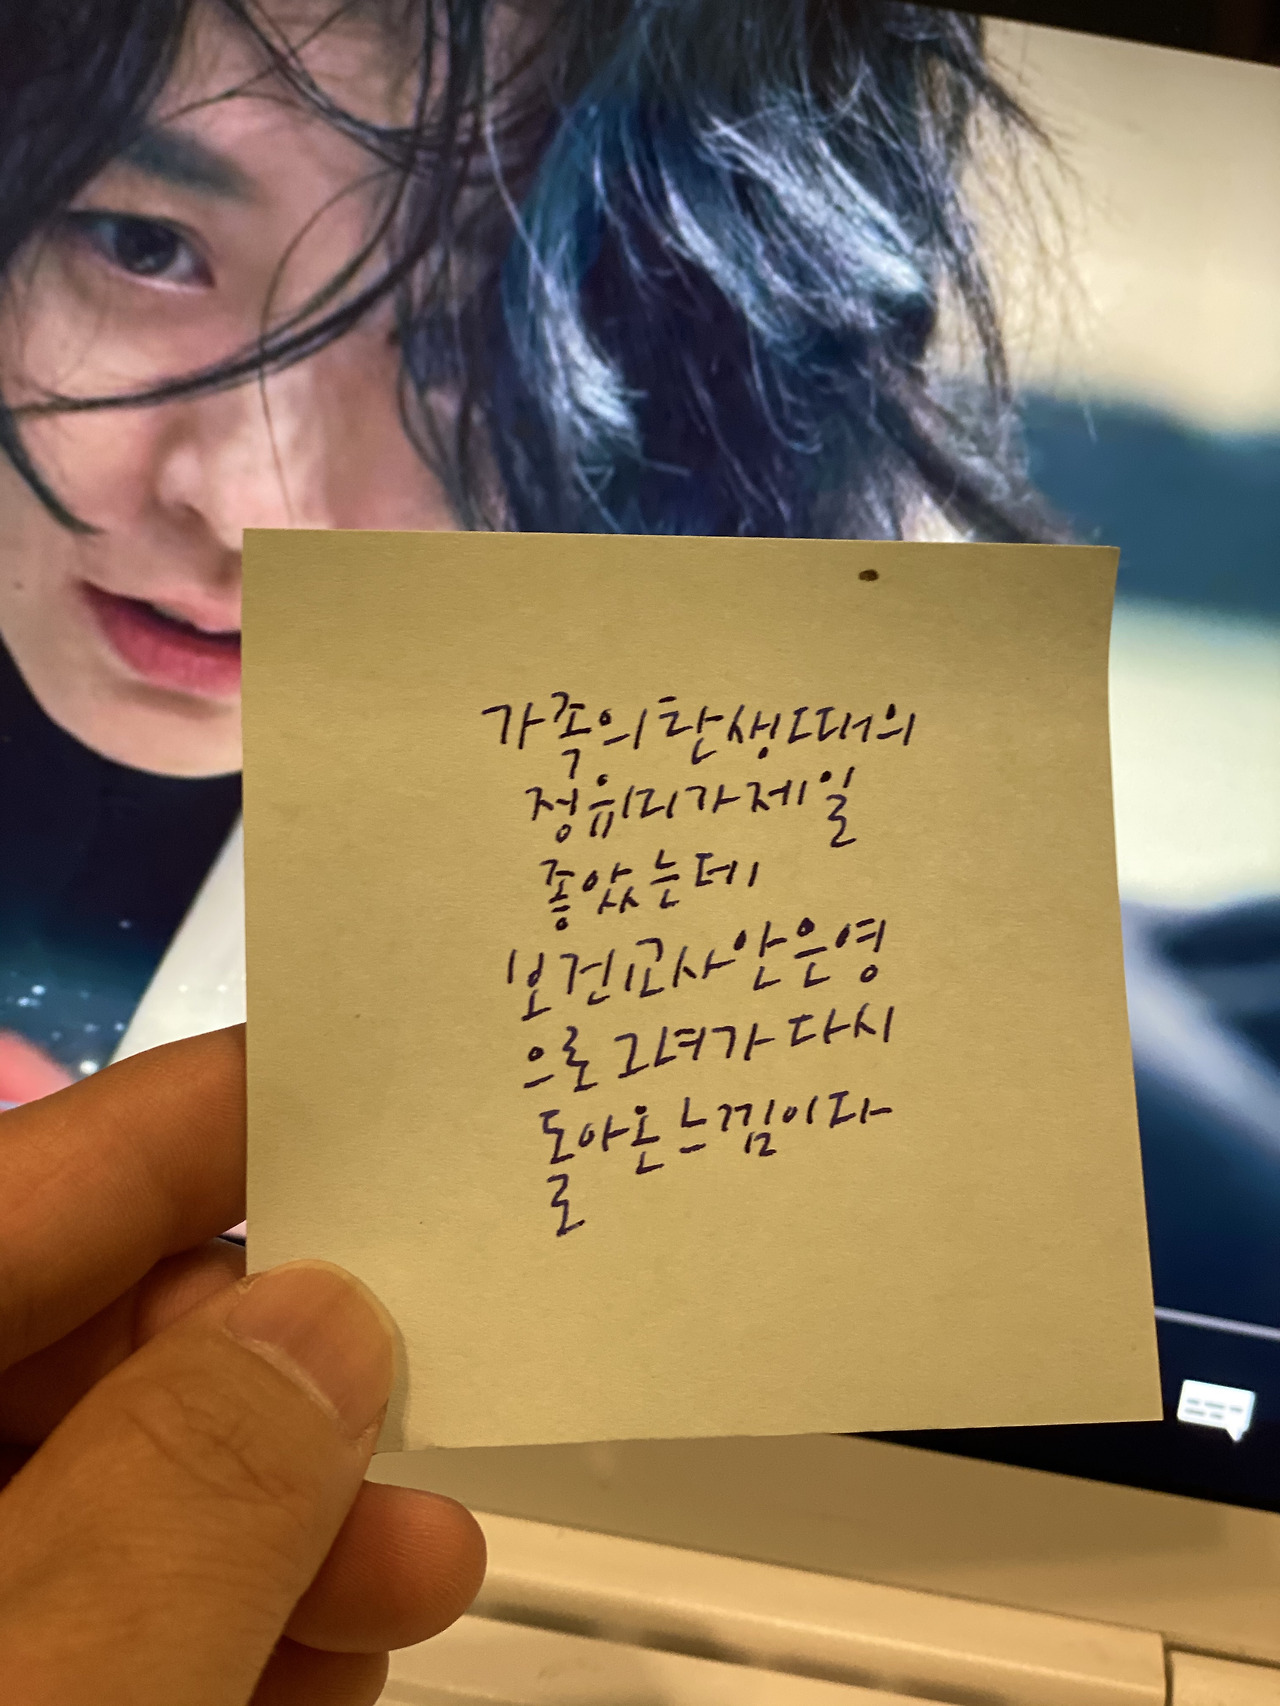 가족의 탄생 때의
정유미가 제일
좋았는데
보건교사 안은영
으로 그녀가 다시
돌아온 느낌이다
로